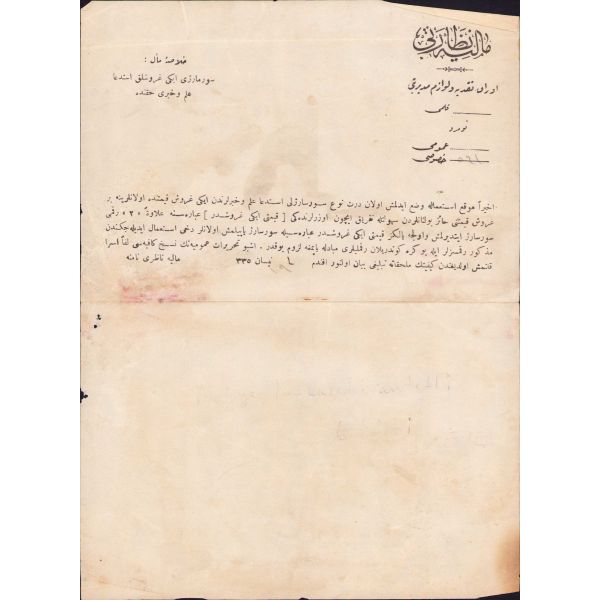 مالیه نظارتی
اوراق نقدیه و لوازم مدیریتی
قلمی
نومرو
عمومی
خصوصی
خلاصۀ مآل :
سورسارژلی ایکی غروشلق استدعا
علم وخبری حقنده
اخیراً موقع استعماله وضع ایدلمش اولان درت نوع سورسارژلی استدعا علم وخبرلرندن ایکی غروش قیمتنده اولانلرینه بر
غروش قیمتی حائز بولنانلردن سهولتله تفریق ایچون اوزرلرنده‌کی [ قیمتی ایکی غروشدر ] عباره‌سنه علاوةً «۲» رقمی
سورسارژ ایتدیرلمش واولجه یالکز قیمتی ایکی غروشدر عباره‌سیله سورسارژ یاپیلمش اولانلر دخی استعمال ایدیله‌جکندن
مذکور رقمسزلر ایله بو کره کوندریلان رقملیلری مبادله یاپمغه لزوم یوقدر . اشبو تحریرات عمومیه‌نك نسخ کافیه‌سی لفاً اسرا
قلنمش اولدیغندن کیفیتك ملحقاته تبلیغی بیان اولنور افندم
نیسان ۳۳۵
مالیه ناظری نامنه